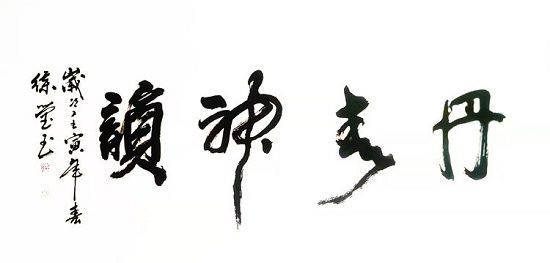 丹青神韻
歲次壬寅年春
徐瑩玉